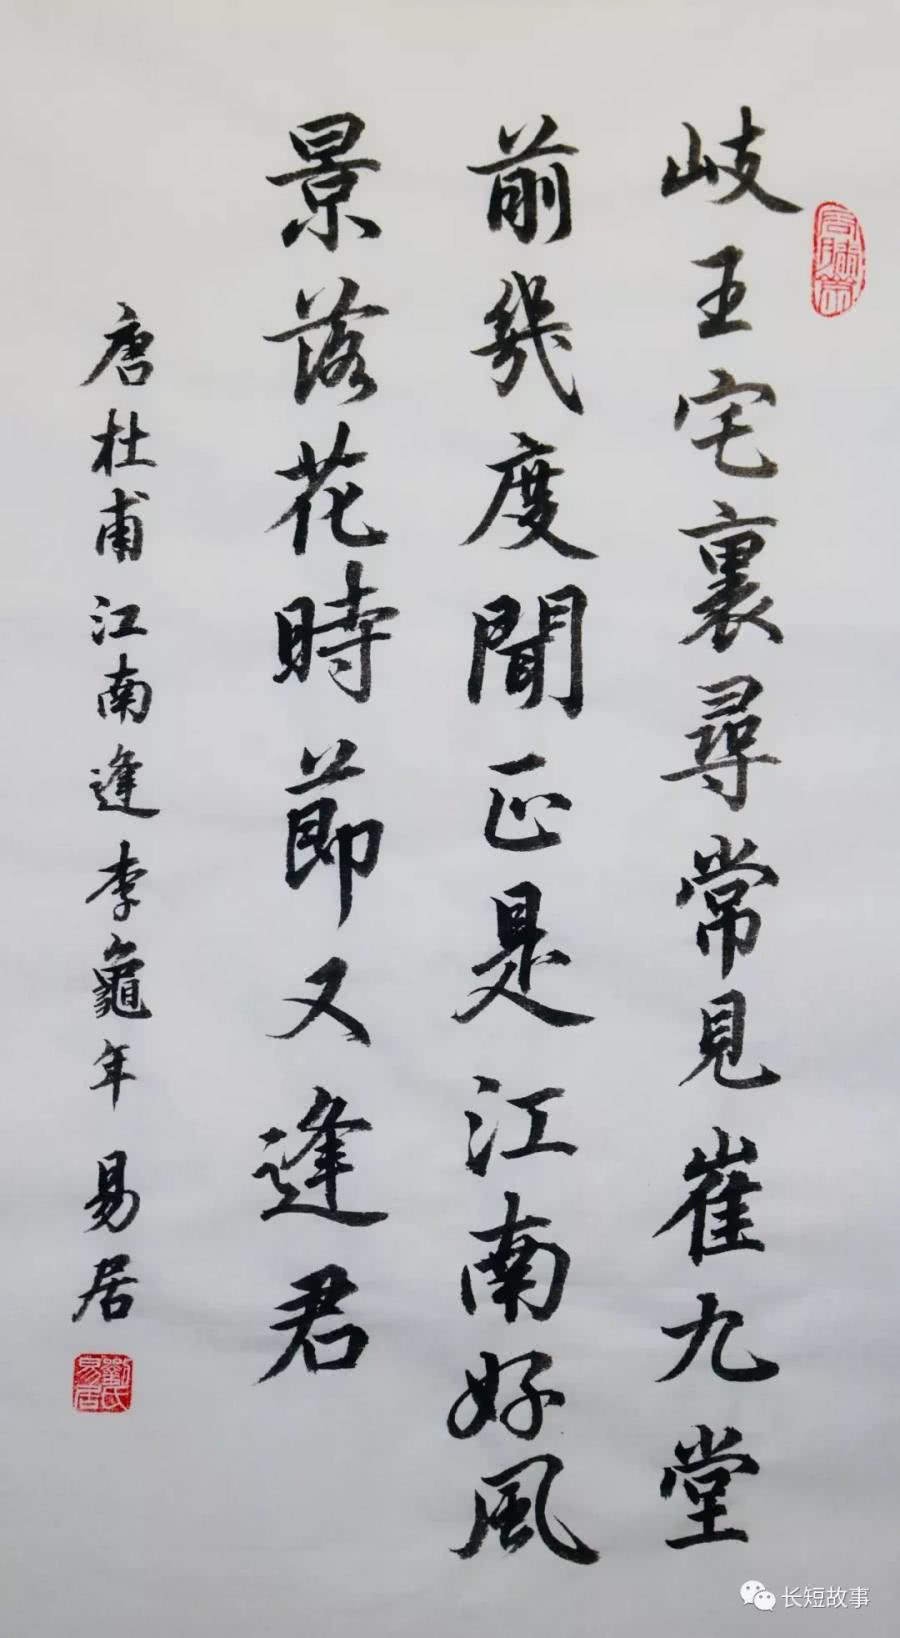 岐王宅裏尋常見崔九堂
前幾度聞正是江南好風
景落花時節又逢君
唐杜甫江南逢李龜年 易居
劉氏易居
长短故事